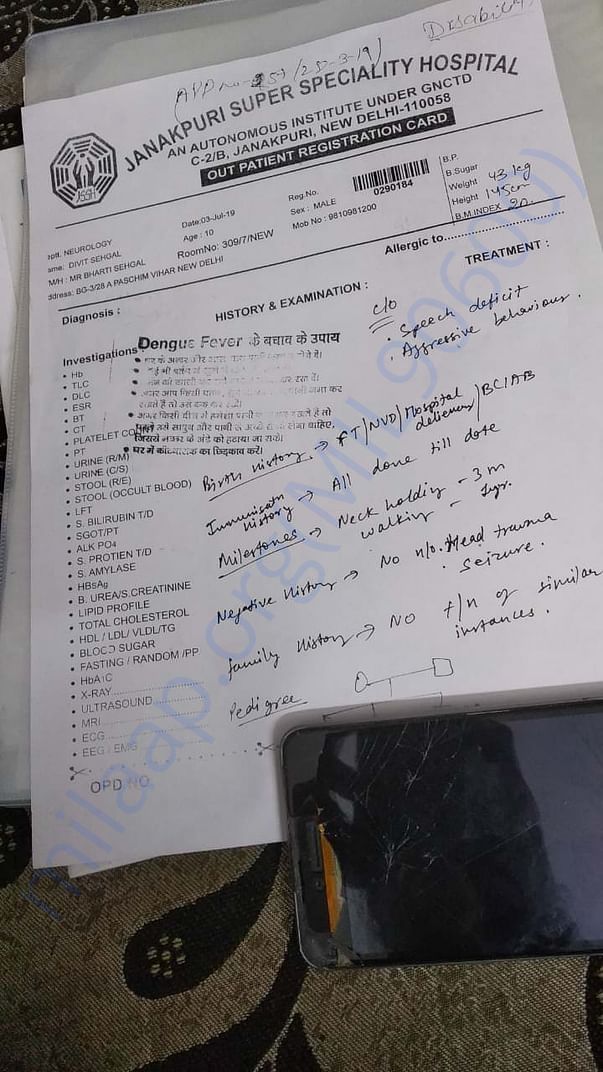 Disability
(APP no- 257 (25-3-19)
JANAKPURI SUPER SPECIALITY HOSPITAL
AN AUTONOMOUS INSTITUTE UNDER GNCTD
C-2/B, JANAKPURI, NEW DELHI-110058
OUT PATIENT REGISTRATION CARD
JSSH
NEUROLOGY
DIVIT SEHGAL
M/H : MR BHARTI SEHGAL
BG-3/28 A PASCHIM VIHAR NEW DELHI
Date:03-Jul-19
Age : 10
RoomNo: 309/7/NEW
Reg.No. 0290184
Sex : MALE
Mob No : 9810981200
B.P.
B.Sugar
Weight 43 kg
Height 145cm
B.M.INDEX 20
Diagnosis :
HISTORY & EXAMINATION :
Allergic to
TREATMENT :
c/o
• Speech deficit
• Aggressive behaviour.
Dengue Fever के बचाव के उपाय
• घर में कीटनाशक का छिड़काव करें।
Investigations
• Hb
• TLC
• DLC
• ESR
• BT
• CT
• PLATELET
• PT
• URINE (R/M)
• URINE (C/S)
• STOOL (R/E)
• STOOL (OCCULT BLOOD)
• LFT
• S. BILIRUBIN T/D
• SGOT/PT
• ALK PO4
• S. PROTIEN T/D
• S. AMYLASE
• HBsAg
• B. UREA/S.CREATININE
• LIPID PROFILE
• TOTAL CHOLESTEROL
• HDL / LDL/ VLDL/TG
• BLOOD SUGAR
• FASTING / RANDOM /PP
• HbA1C
• X-RAY
• ULTRASOUND
• MRI
• ECG
• EEG / EMG
OPD NO.
Birth history → FT/NVD/Hospital delivery/BCIAB
Immunisatn history → All done till date
Milestones → Neck holding - 3 m
walking - 1yr.
Negative history → No h/o. Head trauma
• Seizure.
family history → NO f/h of similar
instances.
Pedigree
milaap.org(MIL99600)